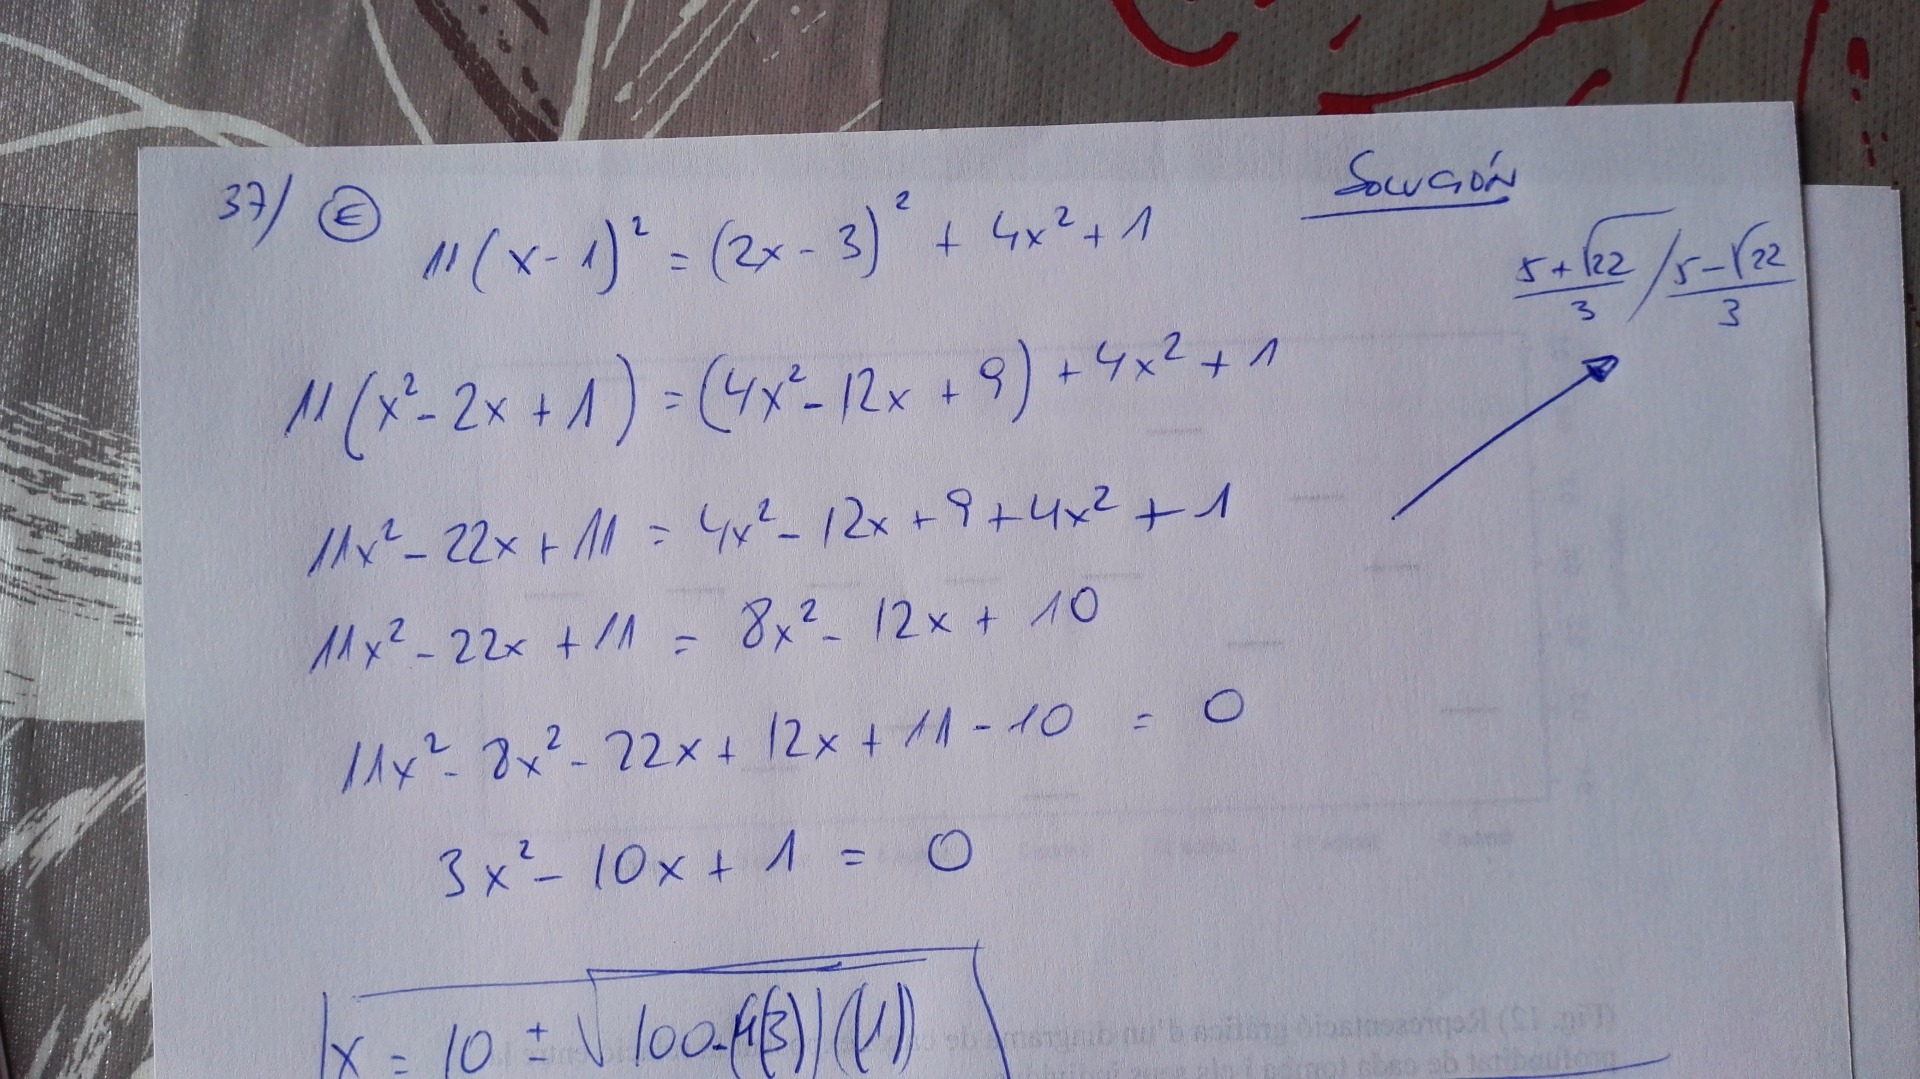 37/ E 11(x-1)² = (2x-3)² + 4x² + 1
SOLUCIÓN
5+√22/3 / 5-√22/3
11(x²-2x+1) = (4x²-12x+9) + 4x² + 1
11x²-22x+11 = 4x²-12x+9+4x²+1
11x²-22x+11 = 8x²-12x+10
11x²-8x²-22x+12x+11-10 = 0
3x²-10x+1 = 0
x = 10 ± √100-4(3)(1)
(Fig. 12) Representació gràfica d'un diagrama de
profunditat de cada tomba i els seus